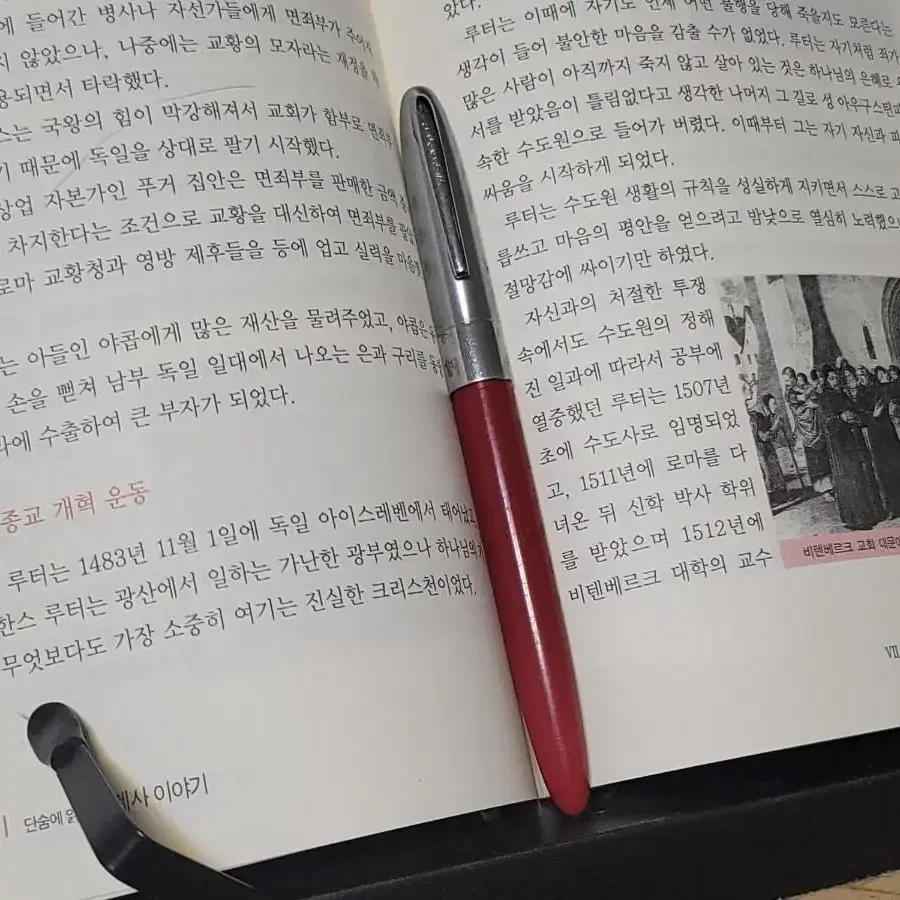 에 들어간 병사나 자선가들에게 면죄부가 주어
지 않았으나, 나중에는 교황의 모자라는 재정을
용되면서 타락했다.
스는 국왕의 힘이 막강해져서 교회가 함부로 면죄부
기 때문에 독일을 상대로 팔기 시작했다.
상업 자본가인 푸거 집안은 면죄부를 판매한 금액
차지한다는 조건으로 교황을 대신하여 면죄부를
로마 교황청과 영방 제후들을 등에 업고 실력을
는 아들인 야콥에게 많은 재산을 물려주었고, 야콥은
손을 뻗쳐 남부 독일 일대에서 나오는 은과 구리를
수출하여 큰 부자가 되었다.
종교 개혁 운동
루터는 1483년 11월 1일에 독일 아이스레벤에서 태어났고,
한스 루터는 광산에서 일하는 가난한 광부였으나 하나님의
무엇보다도 가장 소중히 여기는 진실한 크리스천이었다.
단숨에 사 이야기
았다.
루터는 이때에 자기도 언제 어떤 불행을 당해 죽을지도 모른다는
생각이 들어 불안한 마음을 감출 수가 없었다. 루터는 자기처럼 죄가
많은 사람이 아직까지 죽지 않고 살아 있는 것은 하나님의 은혜로
서를 받았음이 틀림없다고 생각한 나머지 그 길로 성 아우구스틴
속한 수도원으로 들어가 버렸다. 이때부터 그는 자기 자신과
싸움을 시작하게 되었다.
루터는 수도원 생활의 규칙을 성실하게 지키면서 스스로 고
릅쓰고 마음의 평안을 얻으려고 밤낮으로 열심히 노력했으
절망감에 싸이기만 하였다.
자신과의 처절한 투쟁
속에서도 수도원의 정해
진 일과에 따라서 공부에
열중했던 루터는 1507년
초에 수도사로 임명되었
고, 1511년에 로마를 다
녀온 뒤 신학 박사 학위
를 받았으며 1512년에
비텐베르크 대학의 교수
비텐베르크 교회 대문에
VII